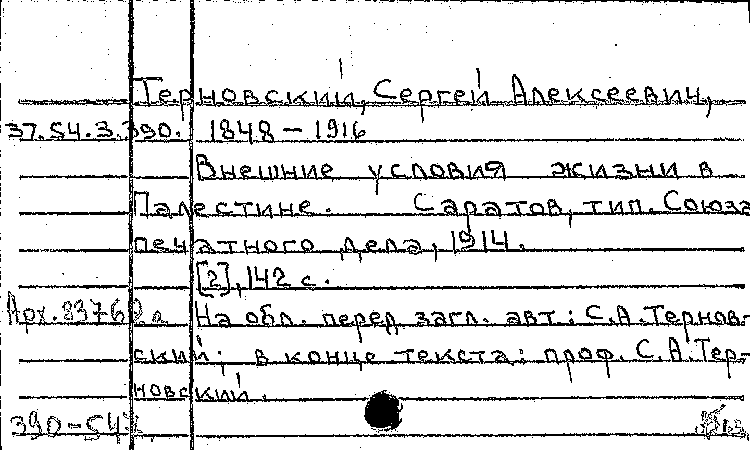 Терновский, Сергей Алексеевич,
37.54.3.390. 1848 – 1916
Внешние условия жизни в
Палестине. Саратов, тип. Союза
печатного дела, 1914.
[2], 142 с.
Арх. 83762а На обл. перед загл. авт.: С.А.Тернов-
ский; в конце текста: проф. С.А.Тер-
новский.